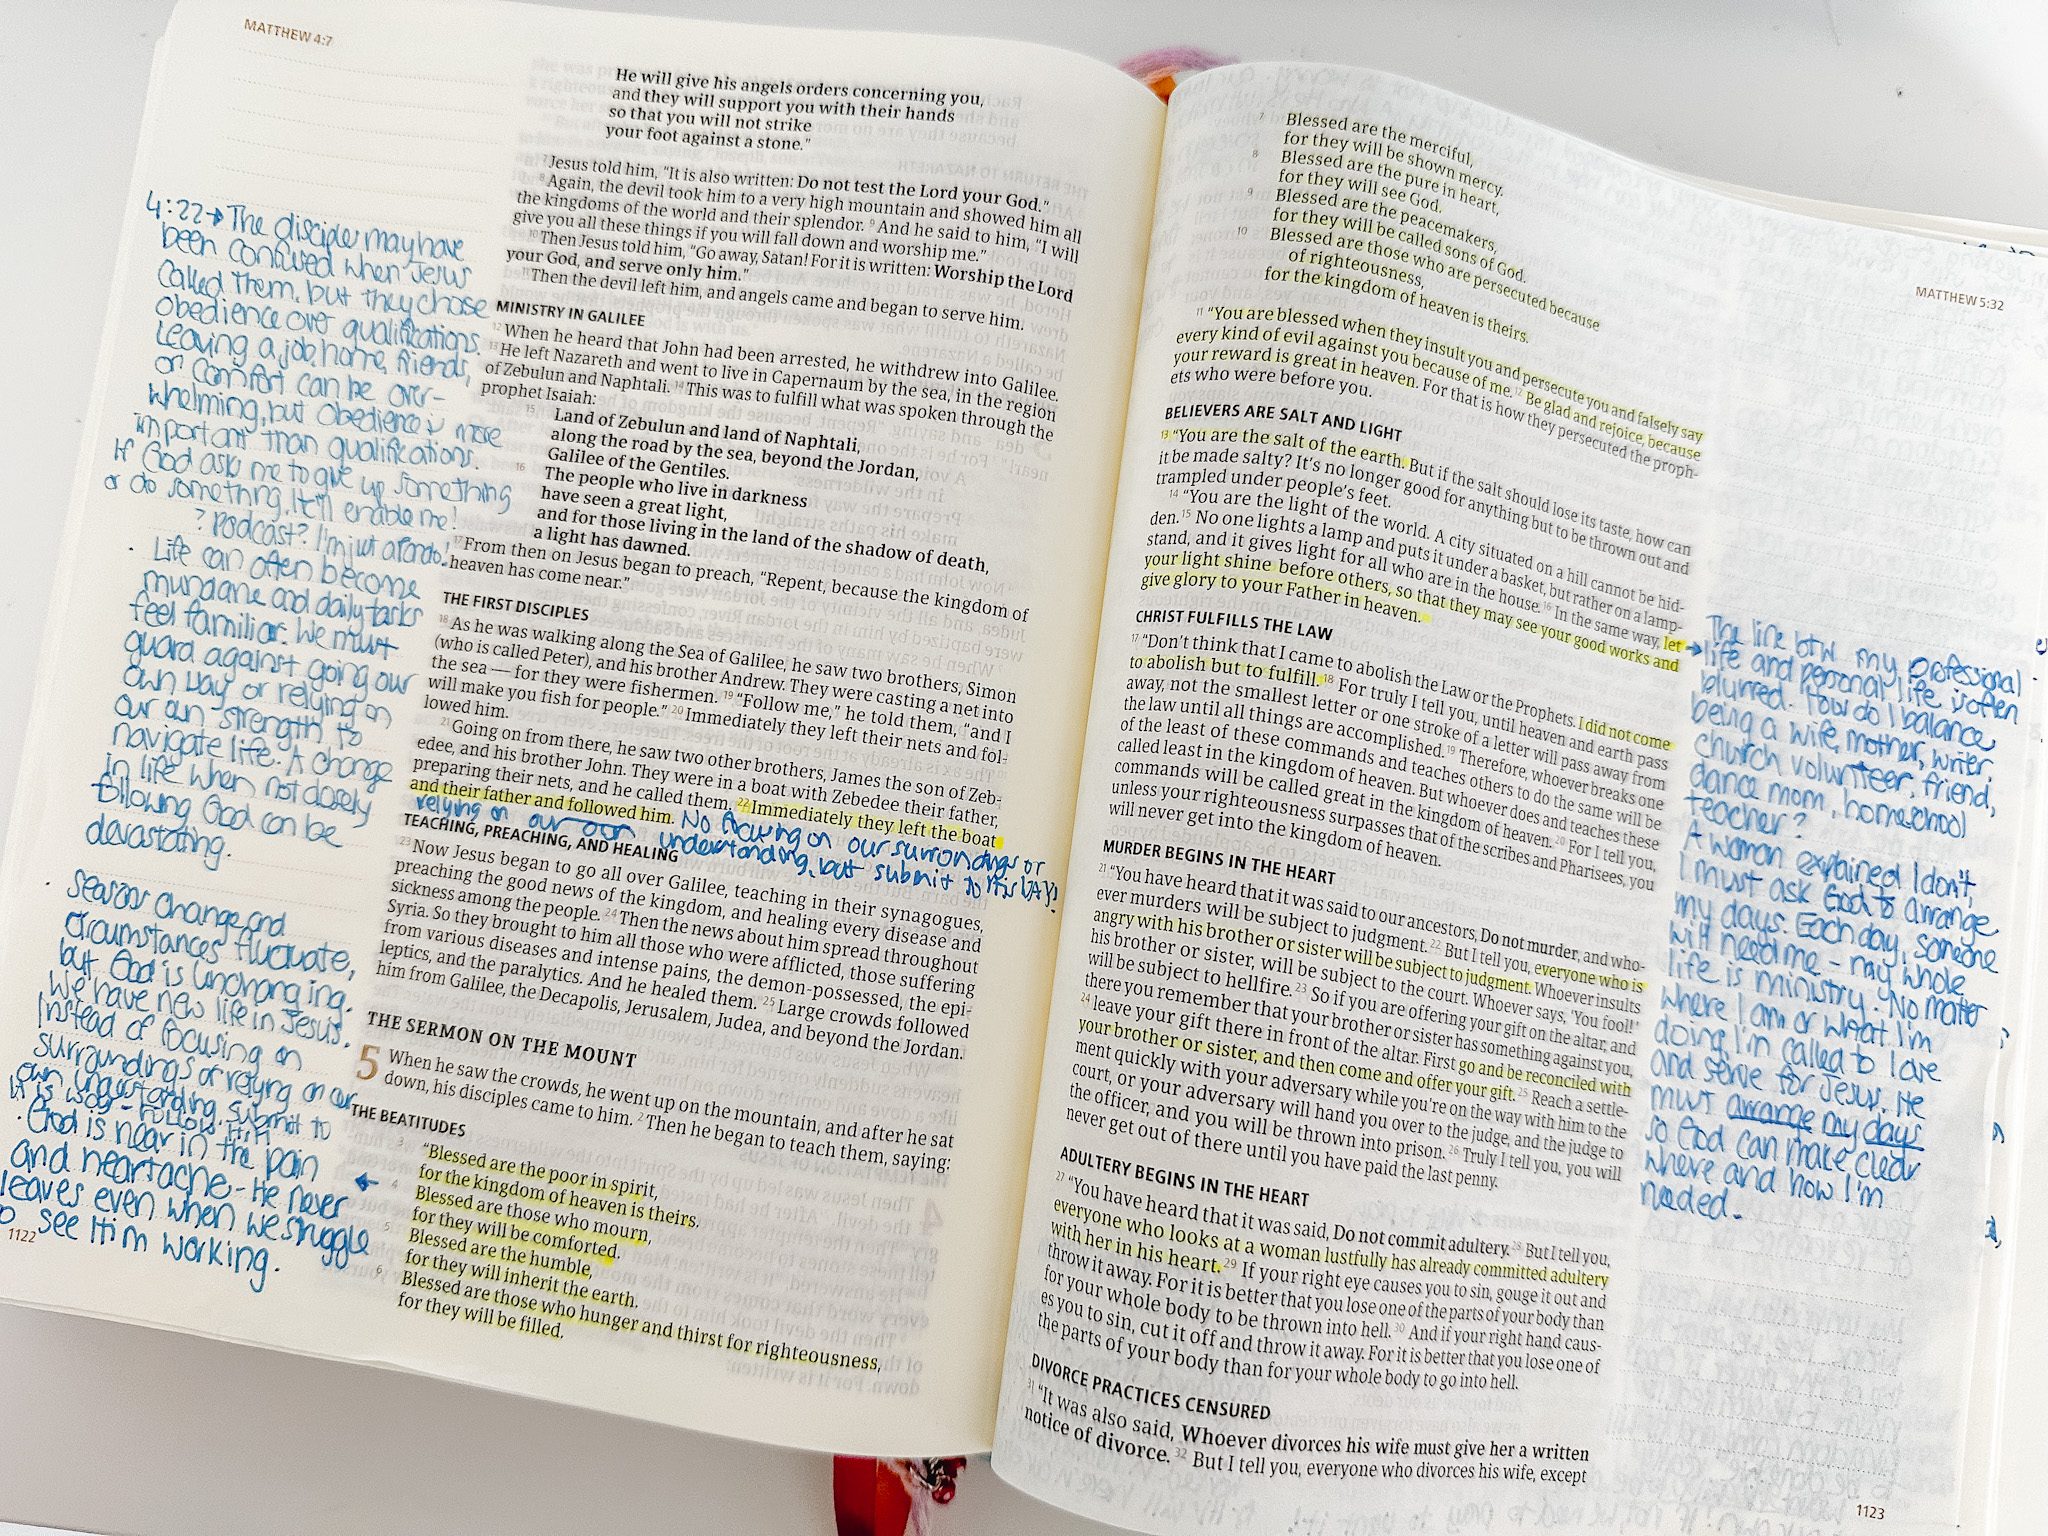 MATTHEW 4:7
He will give his angels orders concerning you,
and they will support you with their hands
so that you will not strike
your foot against a stone."
7 Jesus told him, "It is also written: Do not test the Lord your God."
8 Again, the devil took him to a very high mountain and showed him all
the kingdoms of the world and their splendor. 9 And he said to him, "I will
give you all these things if you will fall down and worship me."
10 Then Jesus told him, "Go away, Satan! For it is written: Worship the Lord
your God, and serve only him."
11 Then the devil left him, and angels came and began to serve him.
MINISTRY IN GALILEE
12 When he heard that John had been arrested, he withdrew into Galilee.
13 He left Nazareth and went to live in Capernaum by the sea, in the region
of Zebulun and Naphtali. 14 This was to fulfill what was spoken through the
prophet Isaiah:
15 Land of Zebulun and land of Naphtali,
along the road by the sea, beyond the Jordan,
Galilee of the Gentiles.
16 The people who live in darkness
have seen a great light,
and for those living in the land of the shadow of death,
a light has dawned.
17 From then on Jesus began to preach, "Repent, because the kingdom of
heaven has come near."
THE FIRST DISCIPLES
18 As he was walking along the Sea of Galilee, he saw two brothers, Simon
(who is called Peter), and his brother Andrew. They were casting a net into
the sea — for they were fishermen. 19 "Follow me," he told them, "and I
will make you fish for people." 20 Immediately they left their nets and fol-
lowed him.
21 Going on from there, he saw two other brothers, James the son of Zeb-
edee, and his brother John. They were in a boat with Zebedee their father,
preparing their nets, and he called them. 22 Immediately they left the boat
and their father and followed him.
No focusing on our surrondings or
relying on our own understanding, but submit to His WAY!
TEACHING, PREACHING, AND HEALING
23 Now Jesus began to go all over Galilee, teaching in their synagogues,
preaching the good news of the kingdom, and healing every disease and
sickness among the people. 24 Then the news about him spread throughout
Syria. So they brought to him all those who were afflicted, those suffering
from various diseases and intense pains, the demon-possessed, the epi-
leptics, and the paralytics. And he healed them. 25 Large crowds followed
him from Galilee, the Decapolis, Jerusalem, Judea, and beyond the Jordan.
THE SERMON ON THE MOUNT
5 When he saw the crowds, he went up on the mountain, and after he sat
down, his disciples came to him. 2 Then he began to teach them, saying:
THE BEATITUDES
3 "Blessed are the poor in spirit,
for the kingdom of heaven is theirs.
4 Blessed are those who mourn,
for they will be comforted.
5 Blessed are the humble,
for they will inherit the earth.
6 Blessed are those who hunger and thirst for righteousness,
for they will be filled.
4:22 → The disciples may have
been confused when Jesus
called them, but they chose
obedience over qualifications.
Leaving a job, home, friends,
or comfort can be over-
whelming, but obedience is more
important than qualifications.
If God ask me to give up something
or do something, It'll enable me!
? Podcast? I'm just a
. Life can often become
mundane and daily tasks
feel familiar. We must
guard against going our
own way or relying on
our own strength to
navigate life. A change
in life when not closely
following God can be
devastating.
. Seasons change and
circumstances fluctuate,
but God is unchanging.
We have new life in Jesus.
Instead of focusing on
surroundings or relying on our
own understanding, submit to
It is way - follow Him
. God is near in the pain
and heartache - He never
leaves even when we struggle
to see Him working.
1122
MATTHEW 5:32
7 Blessed are the merciful,
for they will be shown mercy.
8 Blessed are the pure in heart,
for they will see God.
9 Blessed are the peacemakers,
for they will be called sons of God.
10 Blessed are those who are persecuted because
of righteousness,
for the kingdom of heaven is theirs.
11 "You are blessed when they insult you and persecute you and falsely say
every kind of evil against you because of me. 12 Be glad and rejoice, because
your reward is great in heaven. For that is how they persecuted the proph-
ets who were before you.
BELIEVERS ARE SALT AND LIGHT
13 "You are the salt of the earth. But if the salt should lose its taste, how can
it be made salty? It's no longer good for anything but to be thrown out and
trampled under people's feet.
14 "You are the light of the world. A city situated on a hill cannot be hid-
den. 15 No one lights a lamp and puts it under a basket, but rather on a lamp-
stand, and it gives light for all who are in the house. 16 In the same way, let
your light shine before others, so that they may see your good works and
give glory to your Father in heaven.
CHRIST FULFILLS THE LAW
17 "Don't think that I came to abolish the Law or the Prophets. I did not come
to abolish but to fulfill. 18 For truly I tell you, until heaven and earth pass
away, not the smallest letter or one stroke of a letter will pass away from
the law until all things are accomplished. 19 Therefore, whoever breaks one
of the least of these commands and teaches others to do the same will be
called least in the kingdom of heaven. But whoever does and teaches these
commands will be called great in the kingdom of heaven. 20 For I tell you,
unless your righteousness surpasses that of the scribes and Pharisees, you
will never get into the kingdom of heaven.
MURDER BEGINS IN THE HEART
21 "You have heard that it was said to our ancestors, Do not murder, and who-
ever murders will be subject to judgment. 22 But I tell you, everyone who is
angry with his brother or sister will be subject to judgment. Whoever insults
his brother or sister, will be subject to the court. Whoever says, 'You fool!'
will be subject to hellfire. 23 So if you are offering your gift on the altar, and
there you remember that your brother or sister has something against you,
24 leave your gift there in front of the altar. First go and be reconciled with
your brother or sister, and then come and offer your gift. 25 Reach a settle-
ment quickly with your adversary while you're on the way with him to the
court, or your adversary will hand you over to the judge, and the judge to
the officer, and you will be thrown into prison. 26 Truly I tell you, you will
never get out of there until you have paid the last penny.
ADULTERY BEGINS IN THE HEART
27 "You have heard that it was said, Do not commit adultery. 28 But I tell you,
everyone who looks at a woman lustfully has already committed adultery
with her in his heart. 29 If your right eye causes you to sin, gouge it out and
throw it away. For it is better that you lose one of the parts of your body than
for your whole body to be thrown into hell. 30 And if your right hand caus-
es you to sin, cut it off and throw it away. For it is better that you lose one of
the parts of your body than for your whole body to go into hell.
DIVORCE PRACTICES CENSURED
31 "It was also said, Whoever divorces his wife must give her a written
notice of divorce. 32 But I tell you, everyone who divorces his wife, except
→ The line btw my professional
life and personal life is often
blurred. How do I balance
being a wife, mother, writer,
church volunteer, friend,
dance mom, homeschool
teacher?
A woman explained I don't,
I must ask God to arrange
my days. Each day, someone
will need me - my whole
life is ministry. No matter
where I am or what I'm
doing I'm called to love
and serve for Jesus. He
must arrange my days
so God can make clear
where and how I'm
needed.
1123